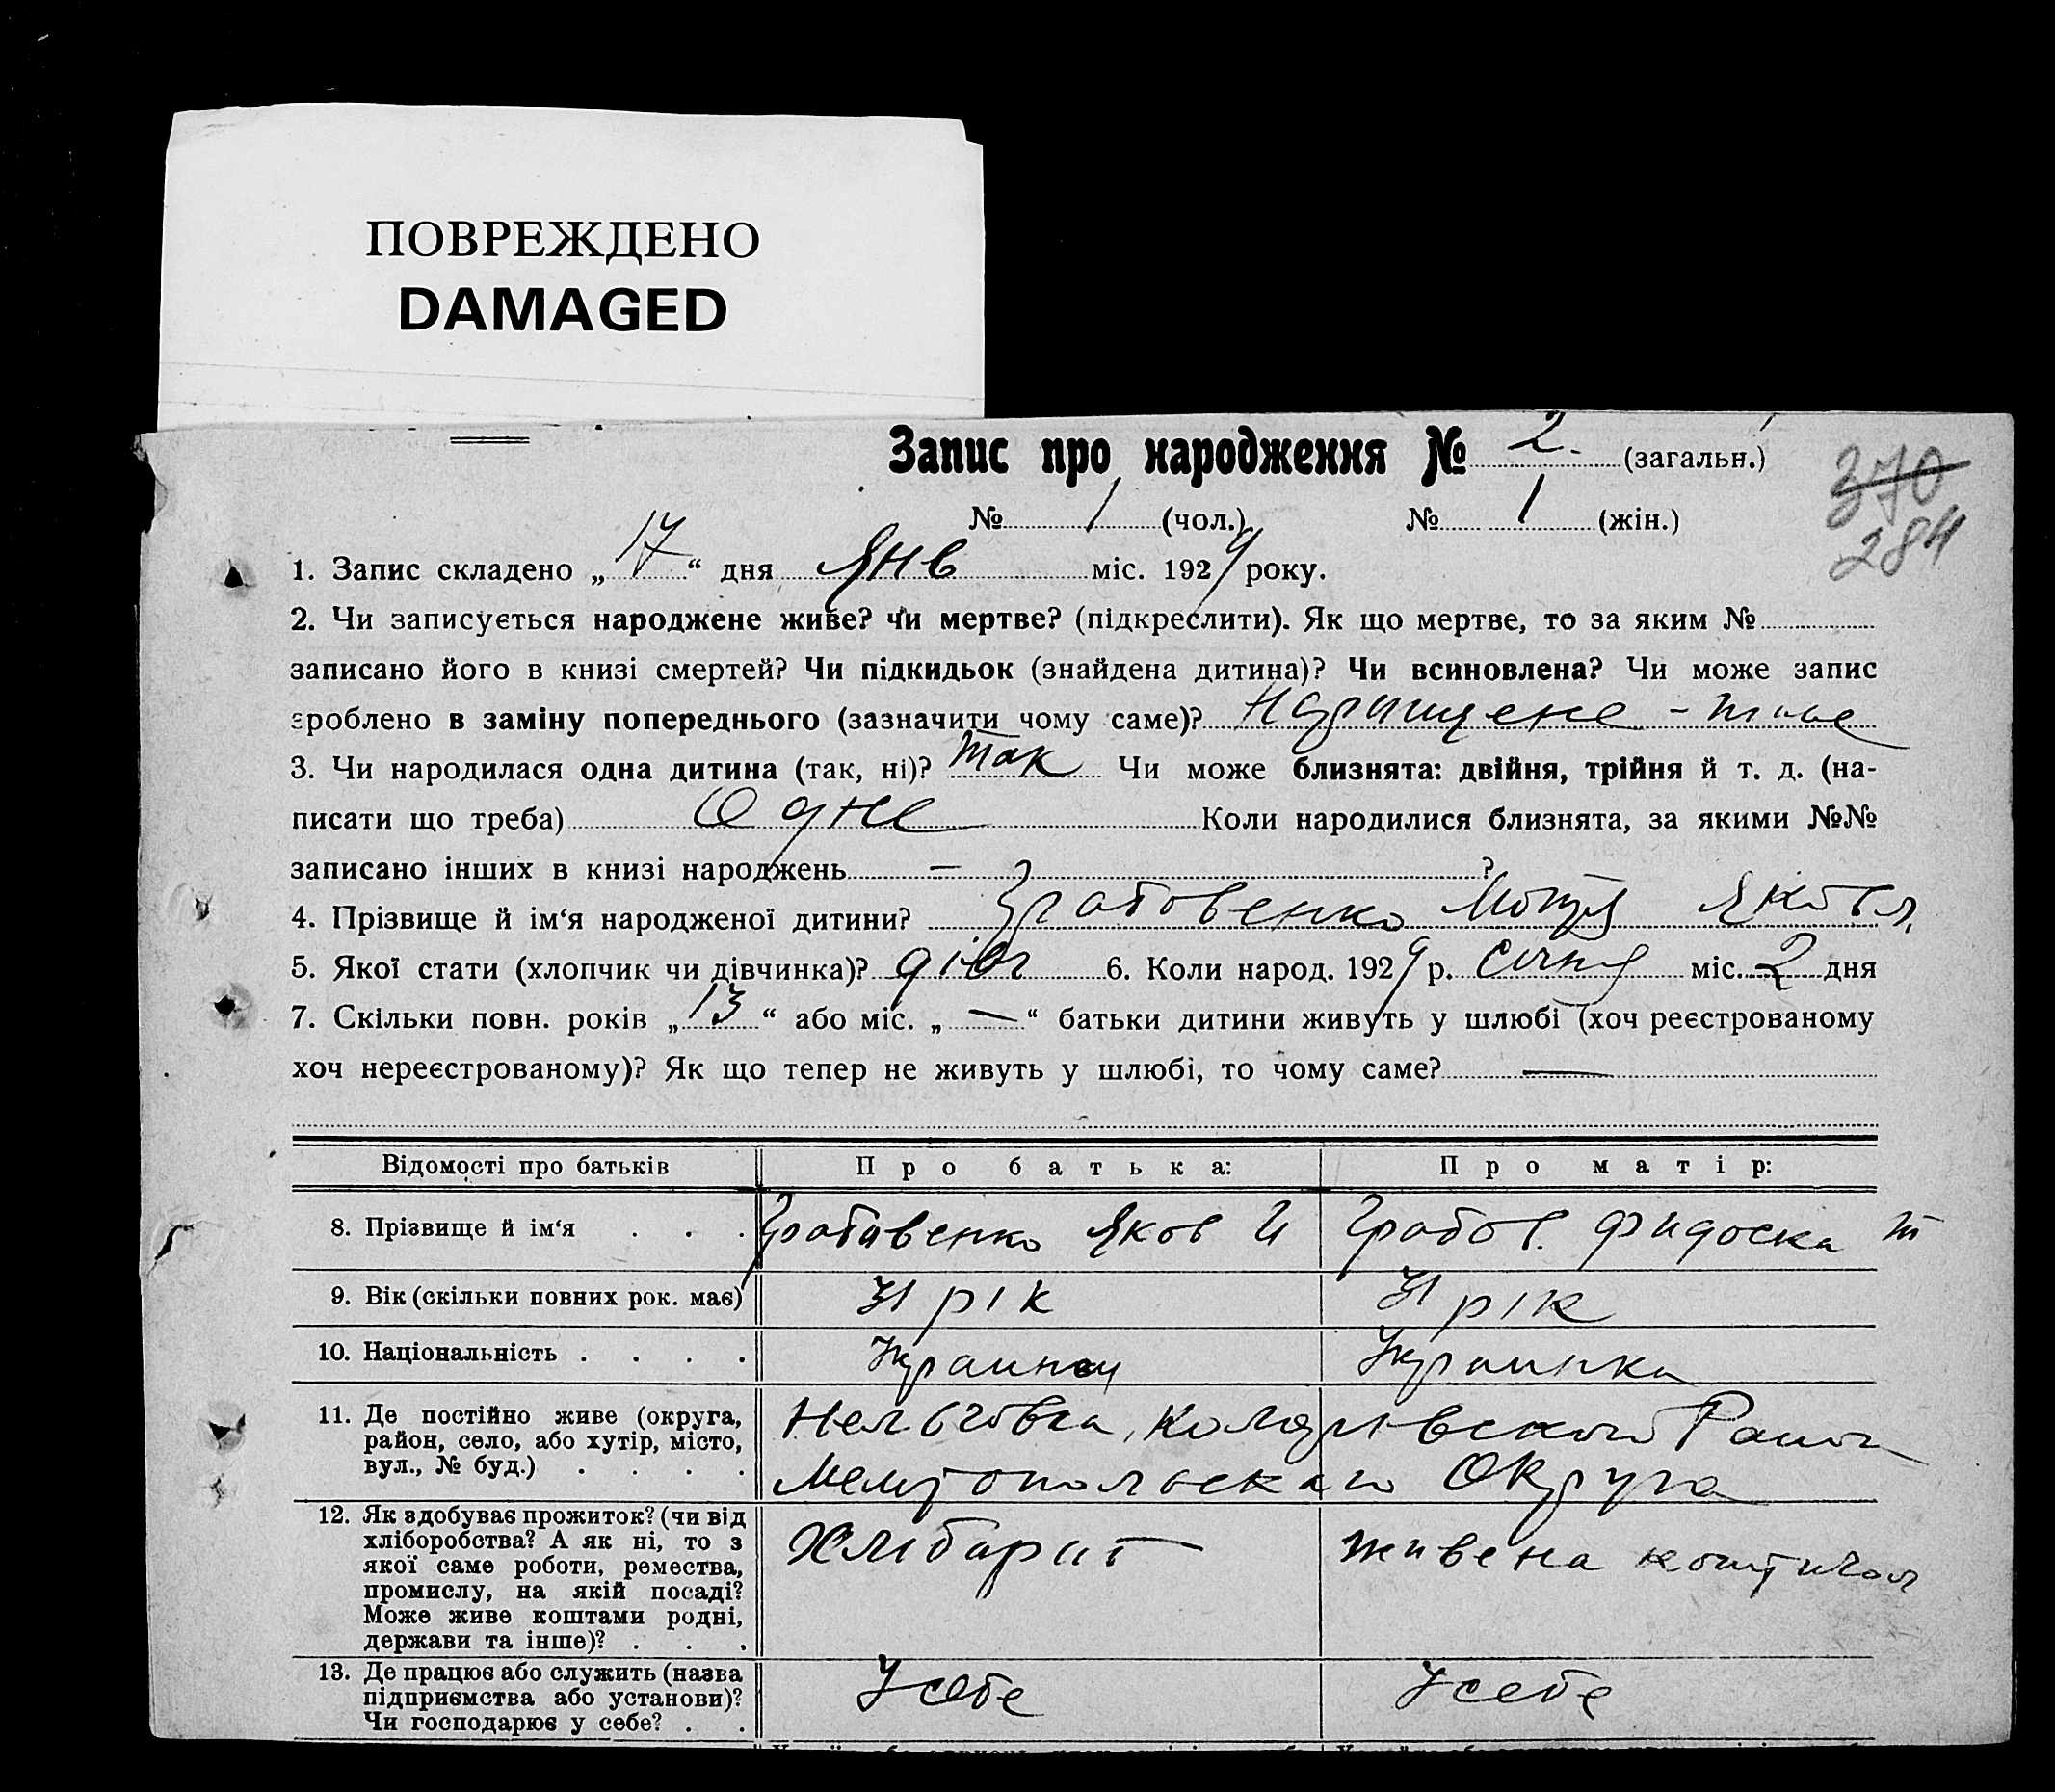 ПОВРЕЖДЕНО
DAMAGED
Запис про народження № 2. (загальн.)
370
№ 1 (чол.) № 1 (жін.)
284
1. Запис складено „17“ дня Янв міс. 1924 року.
2. Чи записується народжене живе? чи мертве? (підкреслити). Як що мертве, то за яким №
записано його в книзі смертей? Чи підкидьок (знайдена дитина)? Чи всиновлена? Чи може запис
зроблено в заміну попереднього (зазначити чому саме)?
3. Чи народилася одна дитина (так, ні)? так Чи може близнята: двійня, трійня й т. д. (на-
писати що треба) Одне Коли народилися близнята, за якими №№
записано інших в книзі народжень — ?
4. Прізвище й ім‘я народженої дитини? Грабовенко Мотря Яковл.
5. Якої стати (хлопчик чи дівчинка)? дівч 6. Коли народ. 1924 р. Січня міс. 2 дня
7. Скільки повн. років „13“ або міс. „—“ батьки дитини живуть у шлюбі (хоч реєстрованому
хоч нереєстрованому)? Як що тепер не живуть у шлюбі, то чому саме? —
Відомості про батьків Про батька: Про матір:
8. Прізвище й ім‘я . . . Грабовенко Яков И Грабов. Фидоска Т
9. Вік (скільки повних рок. має) 31 рік 31 рік
10. Національність . . . . Украинец Украинка
11. Де постійно живе (округа,
район, село, або хутір, місто,
вул., № буд.) . . . .
Нельговка, Район
Мелитопольскаго Округа
12. Як здобуває прожиток? (чи від
хліборобства? А як ні, то з
якої саме роботи, ремества,
промислу, на якій посаді?
Може живе коштами родні,
держави та інше)? . . .
Хлібариб живе на
13. Де працює або служить (назва
підприємства або установи)?
Чи господарює у себе? . .
У себе У себе